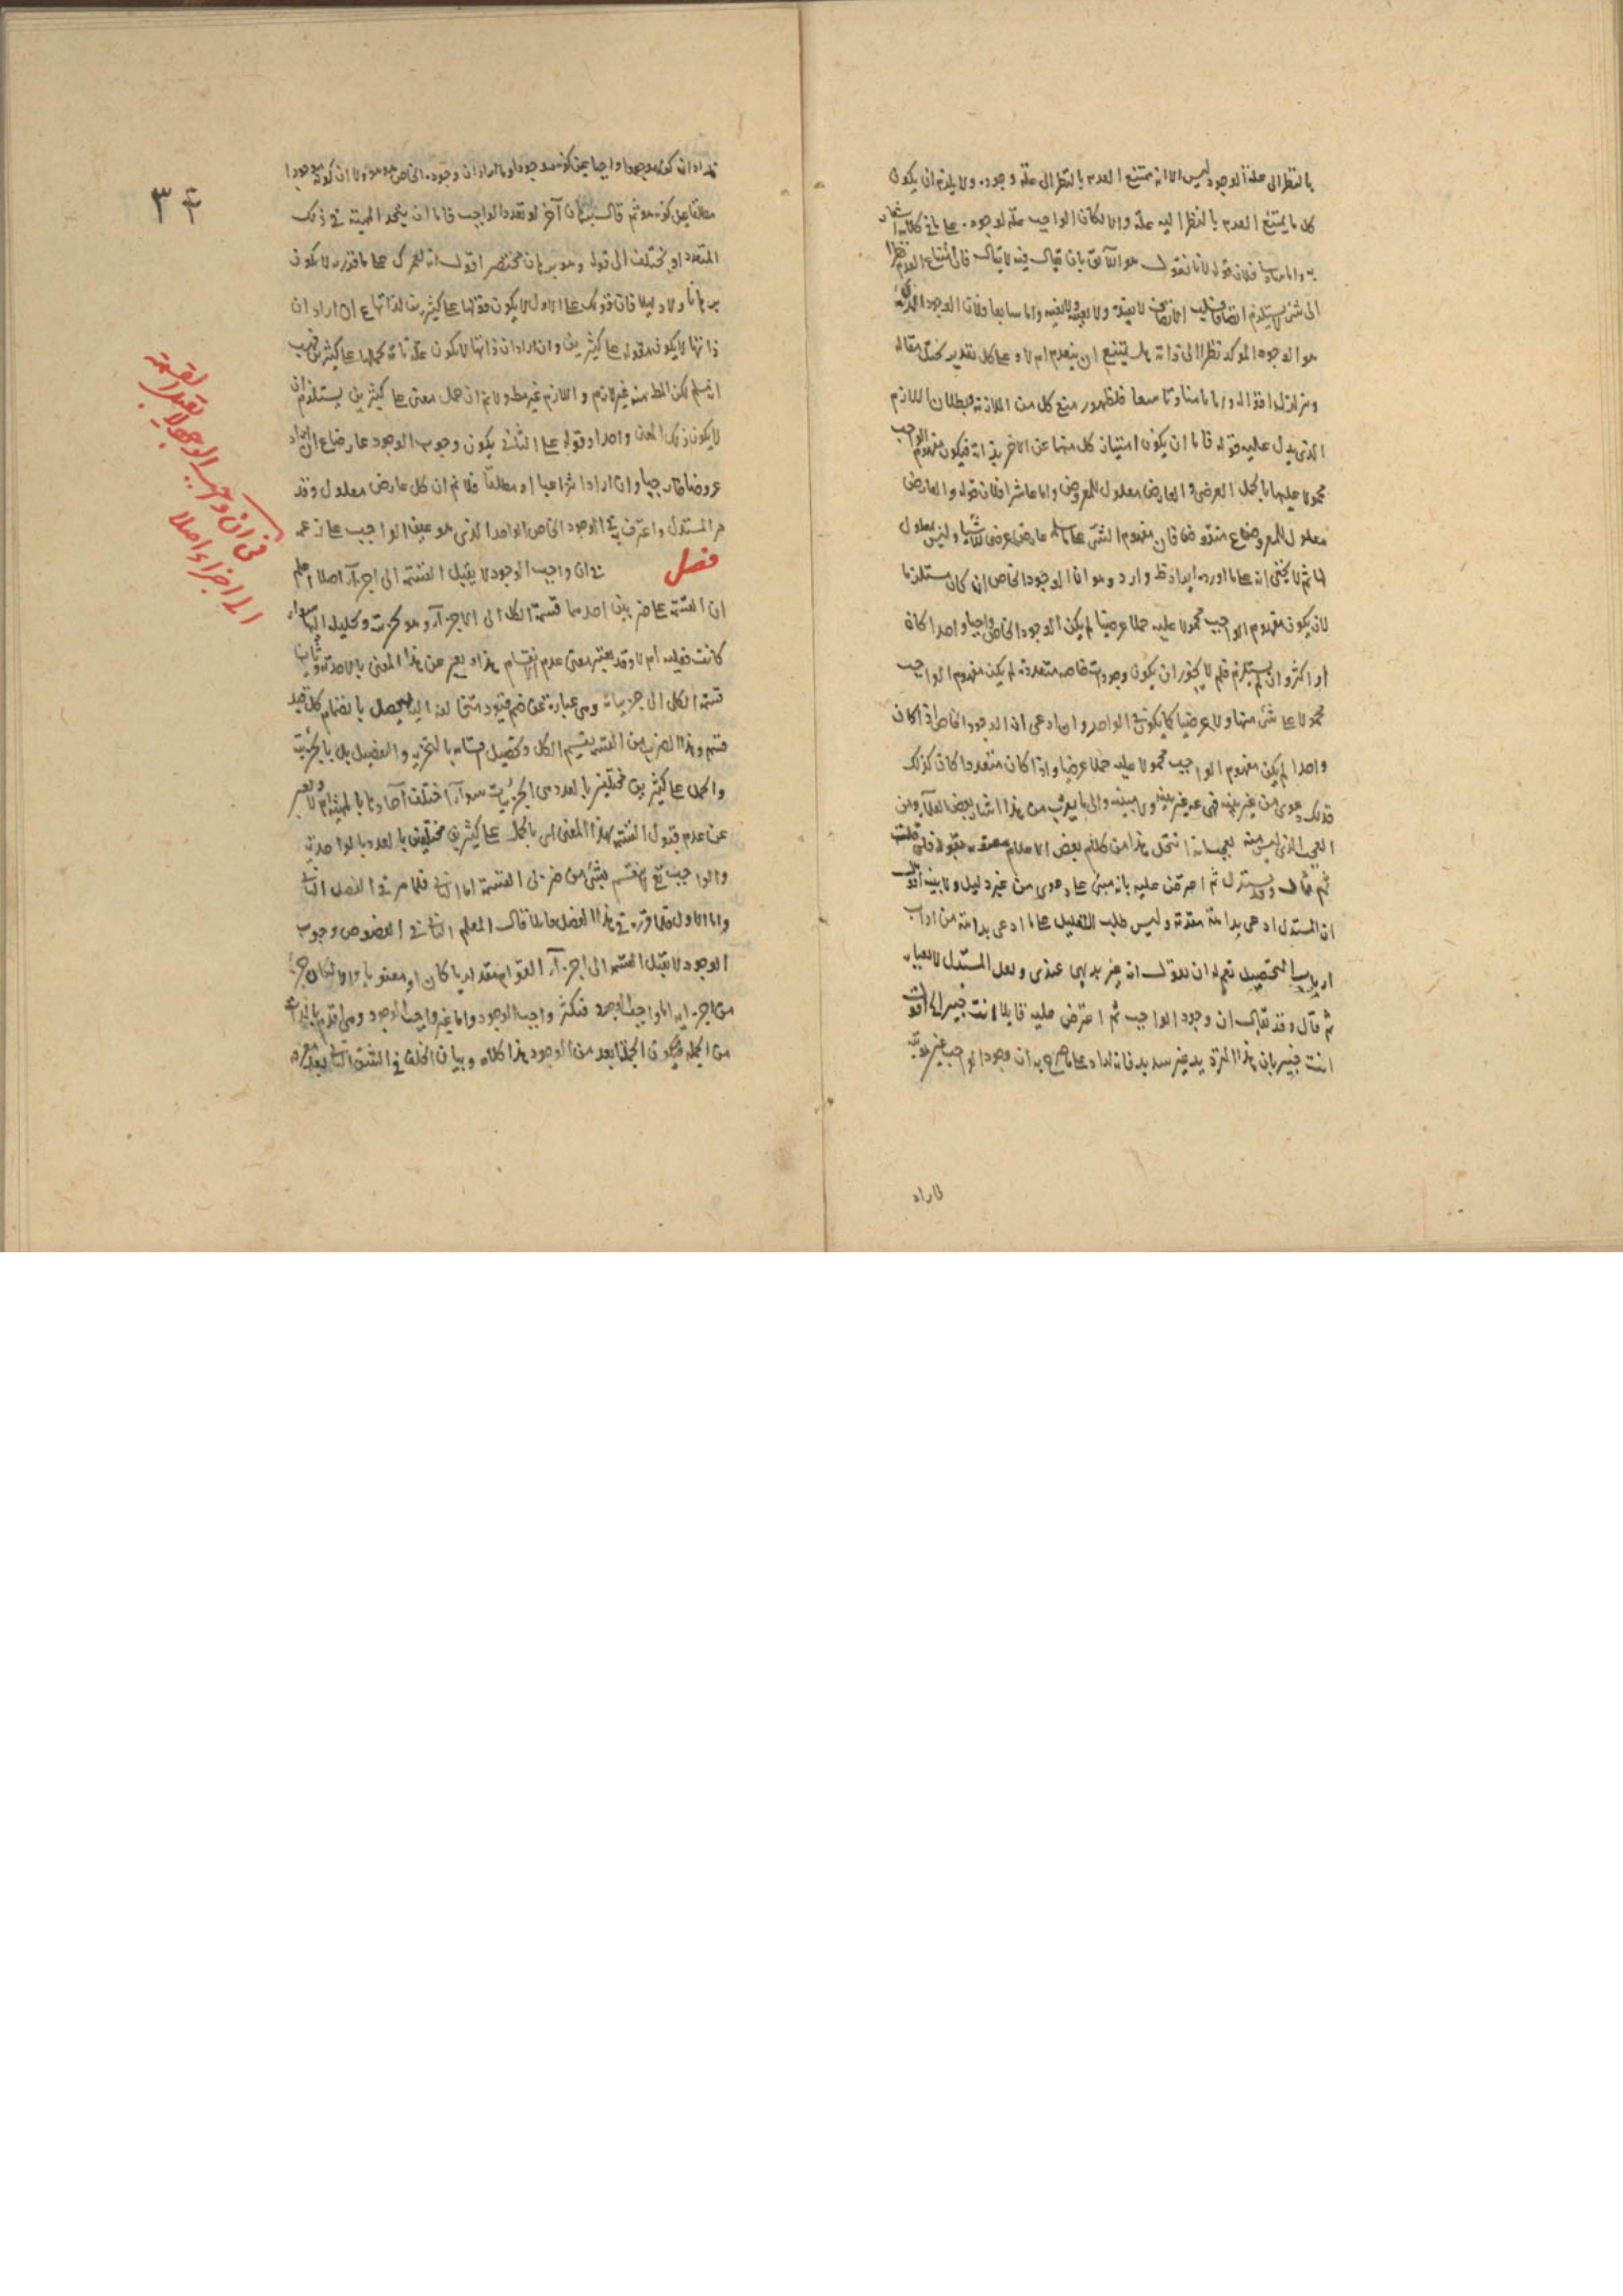 بالنظر الى علة الوجود ليس الا انه يمتنع العدم بالنظر الى علة وجوده ولا يلزم ان يكون
كل ما يمتنع العدم بالنظر اليه علة والا لكان الواجب علة لوجوده على ما في
به واما سادسا فلان قوله لانا نقول هو اللائق بان يقال فيه لا يقال فان امتناع العدم نظرا
الى شئ لا يستلزم ولا بعينه ولا لغيره واما سابعا فلان الوجود الذى
هو الوجود المؤكد نظرا الى ذاته هل يمتنع ان ينعدم ام لا وعلى كل تقدير يختل مقاله
ويتزلزل اقواله واما ثامنا وتاسعا فلظهور منع كل من الملازمة وبطلان اللازم
الذى يدل عليه قوله فاما ان يكون امتياز كل منهما عن الاخر بذاته فيكون مفهوم الواجب
محمولا عليهما بالحمل العرضى والعارض معلول للمعروض واما عاشرا فلان قوله والعارض
معلول للمعروض ع منقوض فان مفهوم الشئ على ما عارض عرضى للاشياء وليس بمعلول
لها ثم لا يخفى انه على ما اورده ايراد ظ وارد وهو ان الوجود الخاص ان كان مستلزما
لان يكون مفهوم الواجب محمولا عليه حملا عرضيا لم يكن الوجود الخاص واجبا واحدا كان
او اكثر وان لم يستلزم فلم لا يجوز ان يكون وجودات خاصة متعددة لم يكن مفهوم الواجب
محمولا على شئ منها ولا عرضيا كما يكون في الواحد وان ادعى ان الوجود الخاص اذا كان
واحدا لم يكن مفهوم الواجب محمولا عليه حملا عرضيا واذا كان متعددا كان كذلك
فذلك دعوى من غير بينة فهى غير بينة ولا مبينة والى ما يقرب من هذا اشار بعض العلماء ومن
العجب الذى ليس منه بعجب انه انتحل هذا من كلام بعض الاعلام بقوله فان قلت
ثم قال وقد يستدل ثم اعترض عليه بانه مبنى على دعوى من غير دليل ولا بينة اقول
ان المستدل ادعى بداهة مقدمة وليس طلب التعليل على ما ادعى بداهته من اداب
ارباب التحصيل نعم له ان يقول انه غير بديهى عندى ولعل المستدل
ثم قال وقد يقال ان وجود الواجب ثم اعترض عليه قايلا انت خبير الخ اقول
انت خبير بان هذا الترديد غير سديد فانه على ما صرح به ان وجود الواجب عين هويته
فاراد
٣٤
فاراد ان كونه موجودا واجبا عين كونه موجودا وما اراد ان وجوده الخاص هو هو ولا ان كونه موجودا
مطلقا عين كونه هو ثم قال برهان آخر لو تعدد الواجب فاما ان يتحد المهية في ذلك
المتعدد او يختلف الى قوله وهو برهان مختصر اقول انه لعمرك على ما قرره لا يكون
برهانا ولا دليلا فان قولك على الاول لا يكون قولها على كثيرين لذاتها ع ان اراد ان
ذاتها لا يكون مقوله على كثيرين وان اراد ان ذاتها لا يكون علة تامة لحملها على كثيرين فهب
انه مسلم لكن المط منه غير لازم واللازم غير مط ولا نم ان حمل معنى على كثيرين يستلزم ان
لا يكون ذلك المعنى واحدا وقوله على الثانى يكون وجوب الوجود عارضا ع ان اراد
عروضا خارجيا وان اراد انتزاعيا او مطلقا فلا نم ان كل عارض معلول وقد
مر المستدل واعترف في الوجود الخاص الواحد الذى هو عين الواجب على زعمه
فصل في ان واجب الوجود لا يقبل القسمة الى اجزاء اصلا اعلم
ان القسمة على ضربين احدهما قسمة الكل الى الاجزاء وهو تجزيته وتحليله اليها سواء
كانت فعلية ام لا وقد يعتبر معنى عدم انقسام هذا ويعبر عن هذا المعنى بالاحدية وثانيا
قسمة الكلى الى جزئياته وهى عبارة عن ضم قيود متخالفة اليه ليحصل بانضمام كل قيد
قسم وهذا الضرب من القسمة يقسم الكلى وتحصيل اقسامه بالتجزية والتفصيل بل بالجزئية
والحمل على كثيرين مختلفين بالعدد هى الجزئيات سواء اختلف آحادها بالمهية ام لا ويعبر
عن عدم قبول القسمة بهذا المعنى اى بالحمل على كثيرين مختلفين بالعدد بالواحدية
والواجب تع لا ينقسم بشئ من ضربى القسمة اما الثانى فلما مر في الفصل الثانى
واما الاول فلما قرره في هذا الفصل قائلا قال المعلم الثانى في الفصوص وجوب
الوجود لا يقبل القسمة الى اجزاء القوام مقداريا كان او معنويا والا لكان جزء
من اجزايه اما واجب الوجود فتكثر واجب الوجود واما غير واجب الوجود وهى اقدم بالذات
من الجملة فيكون الجملة ابعد من الوجود هذا كلامه وبيان الخلف في الشق الثانى بعد
فى ان واجب الوجود لا يقبل القسمة
الى اجزاء اصلا